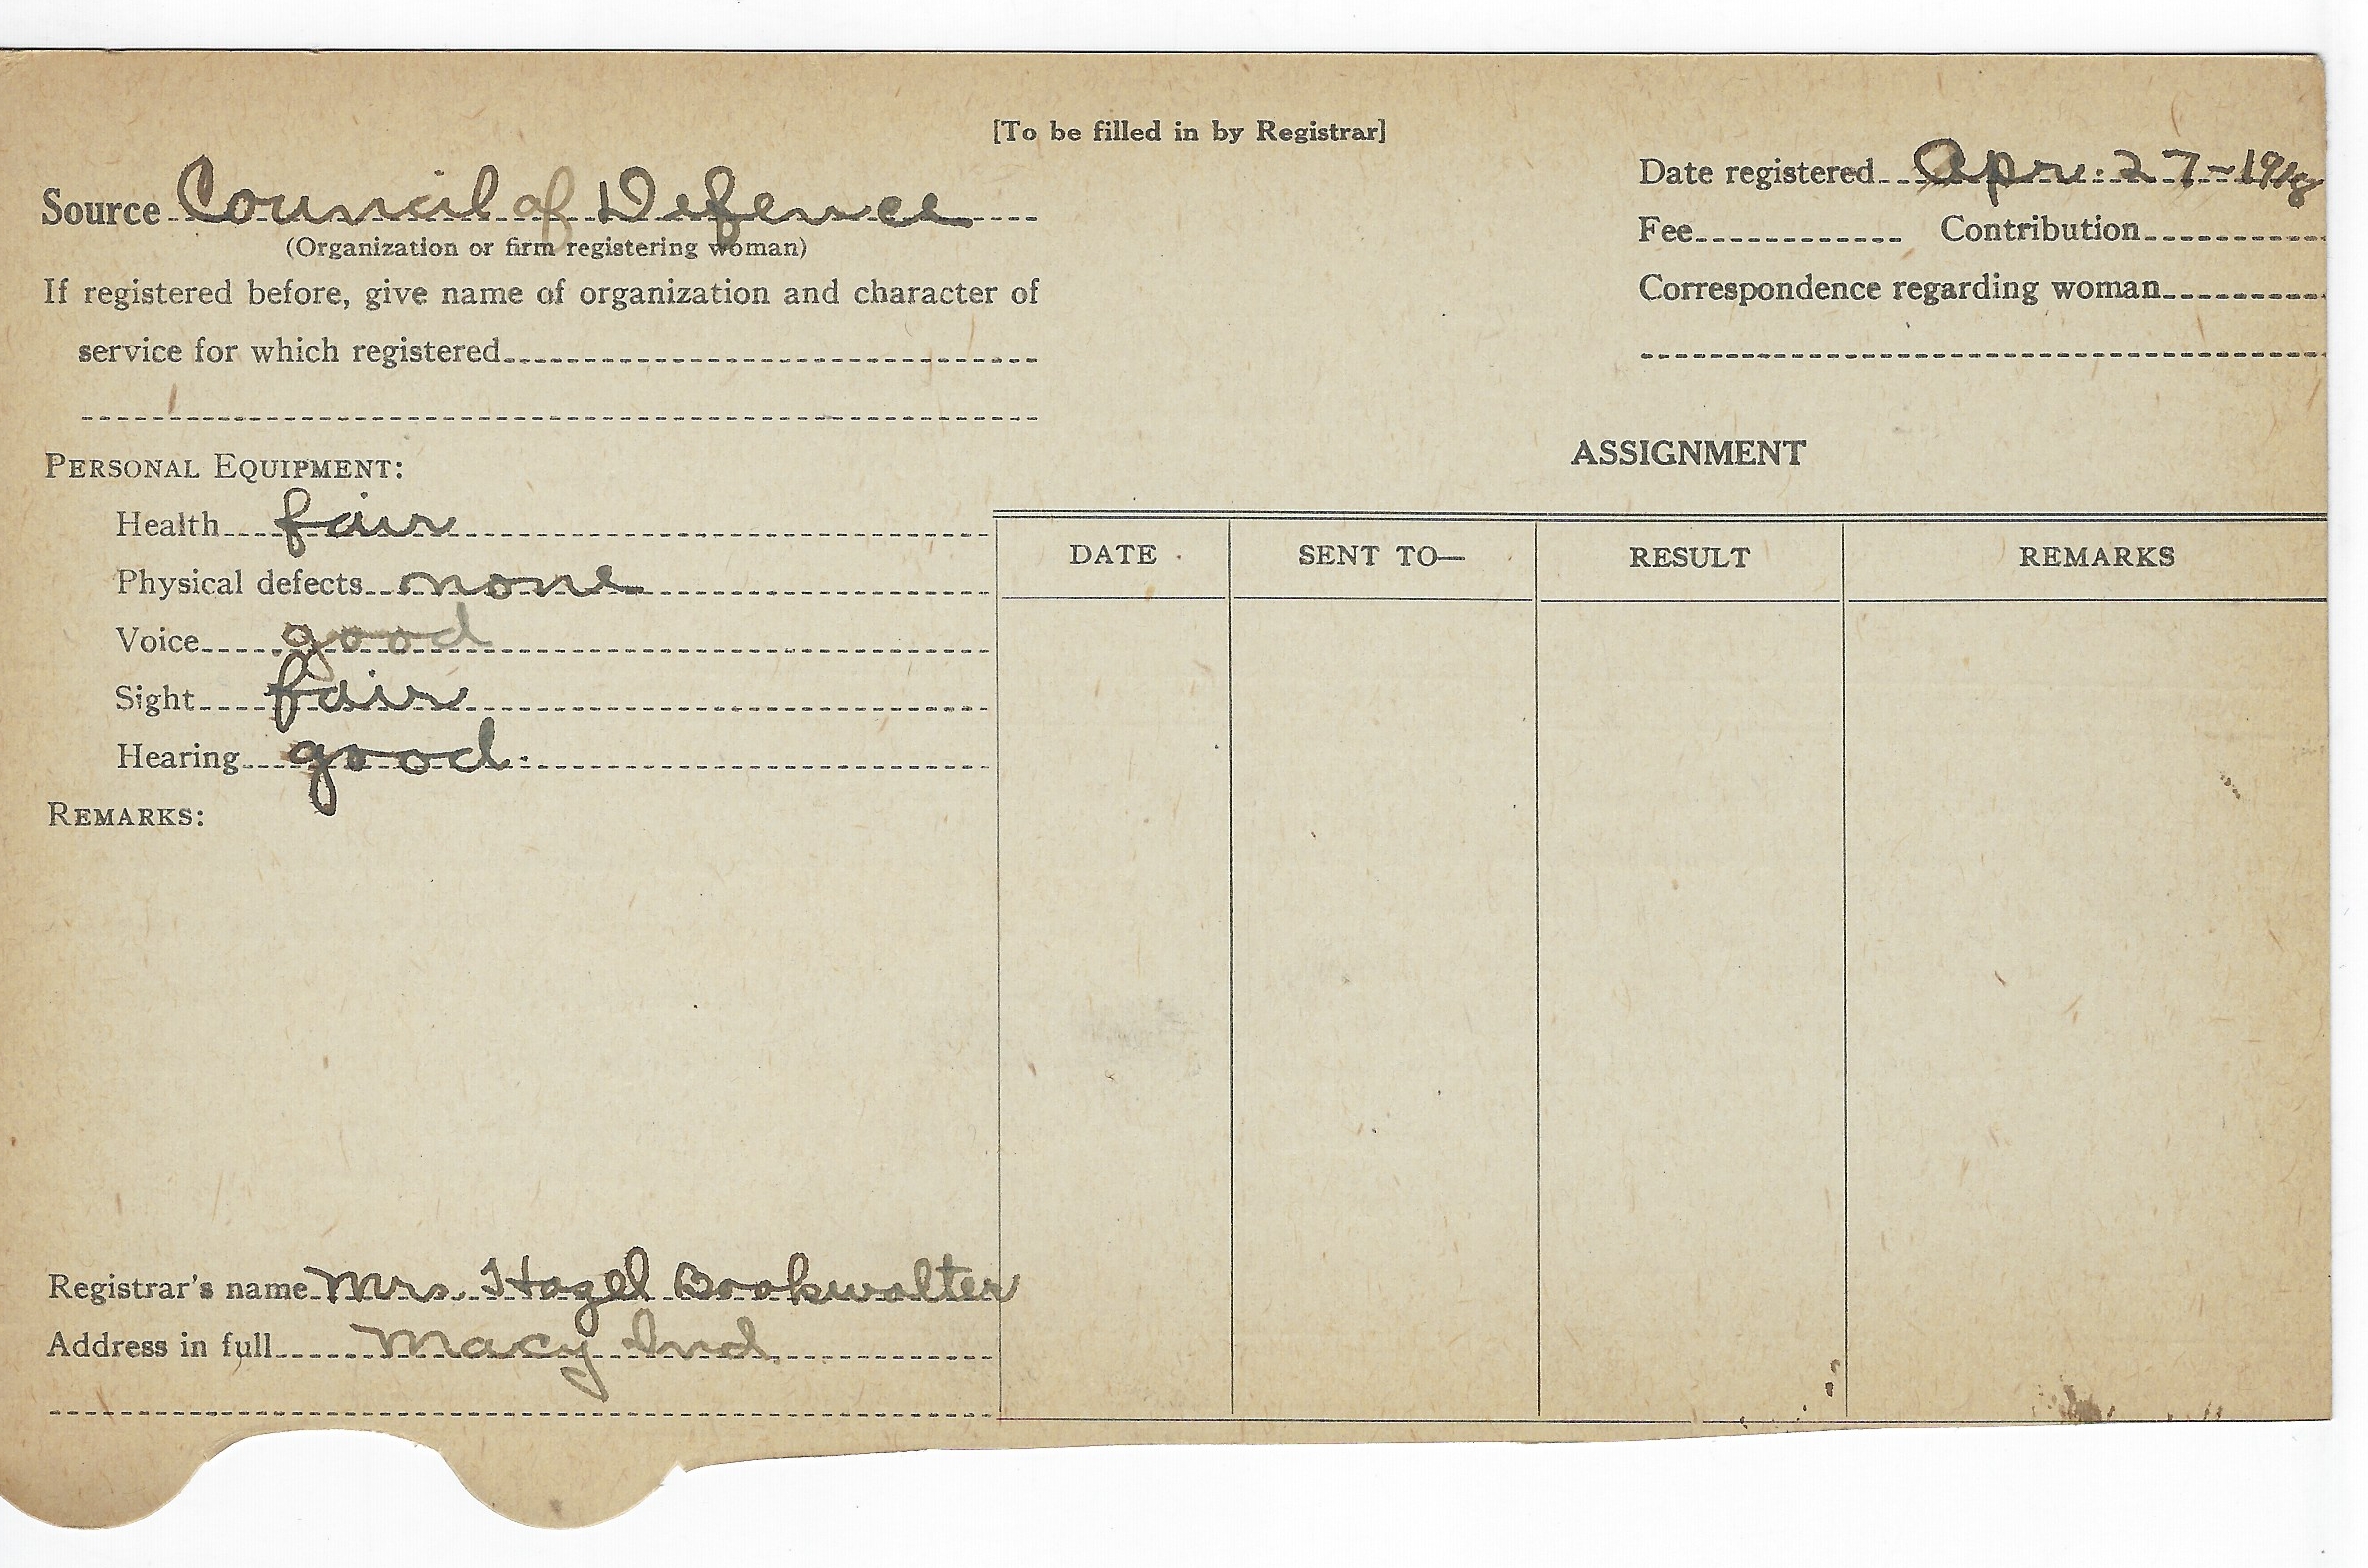 [To be filled in by Registrar]
Source Council of Defence
(Organization or firm registering woman)
If registered before, give name of organization and character of
service for which registered
Date registered Apr. 27-1918
Fee Contribution
Correspondence regarding woman
PERSONAL EQUIPMENT:
Health fair
Physical defects none
Voice good
Sight fair
Hearing good.
REMARKS:
Registrar's name Mrs. Hazel Bookwalter
Address in full Macy Ind.
ASSIGNMENT
DATE SENT TO— RESULT REMARKS